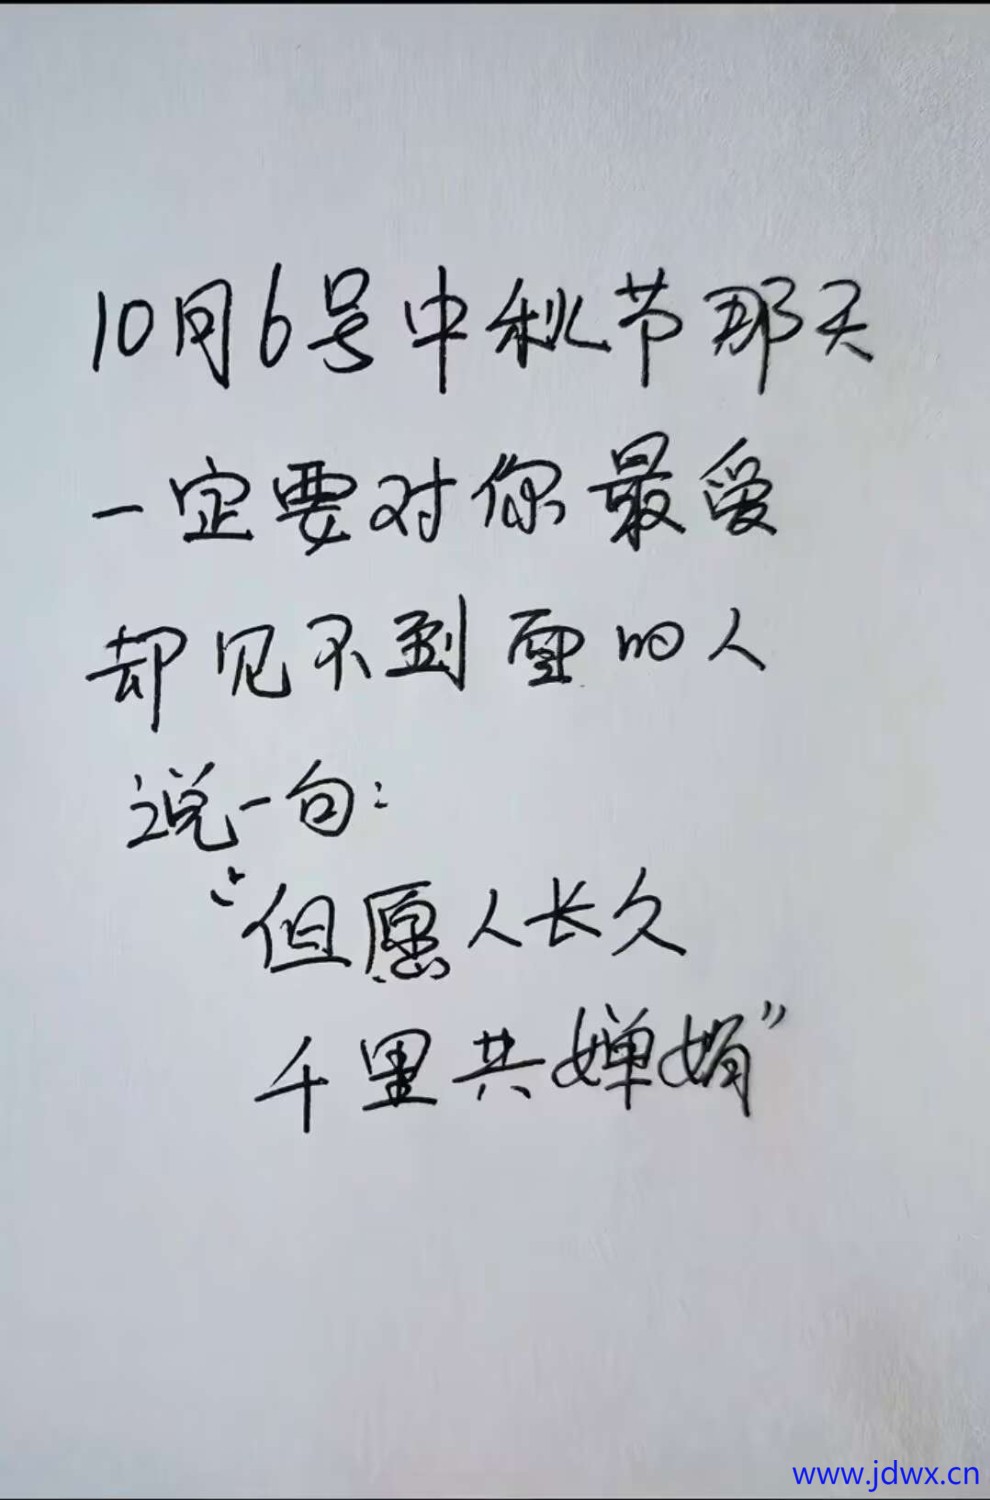 10月6号中秋节那天
一定要对你最爱
却见不到面的人
说一句：
“但愿人长久
千里共婵娟”
www.jdwx.cn